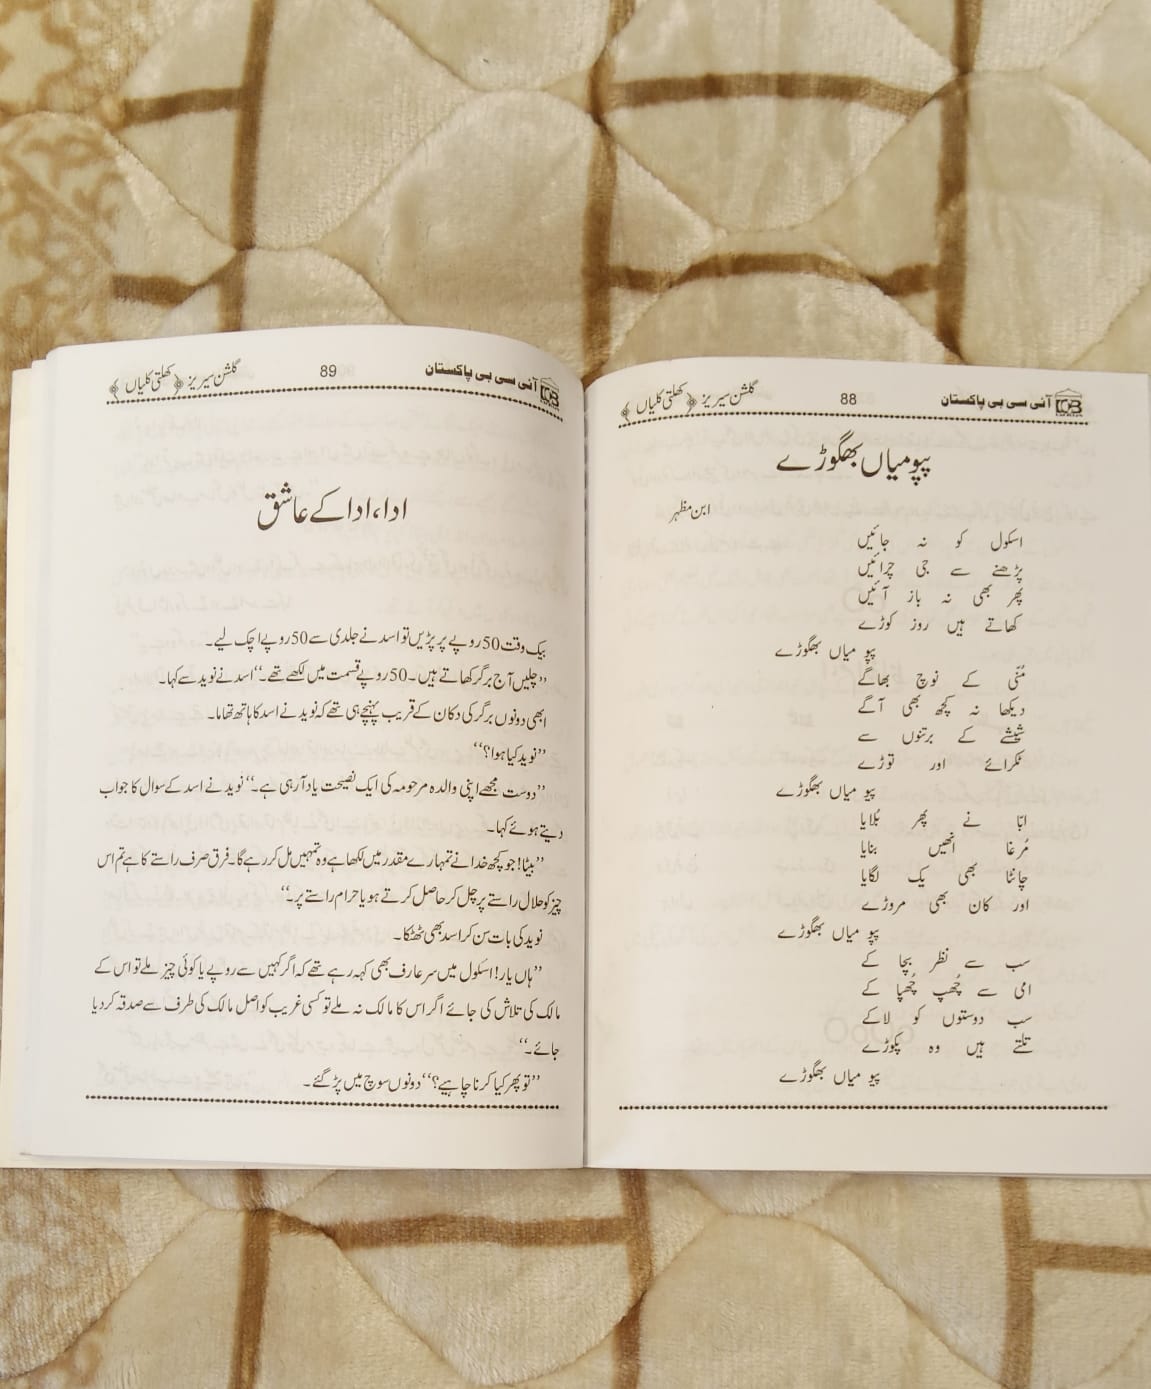 آئی سی بی پاکستان 88 گلشن سیریز ﴿کھلتی کلیاں﴾
پپو میاں بھگوڑے
ابن مظہر
اسکول کو نہ جائیں
پڑھنے سے جی چرائیں
پھر بھی نہ باز آئیں
کھاتے ہیں روز کوڑے
پپو میاں بھگوڑے
مُنّی کے نوچ بھاگے
دیکھا نہ کچھ بھی آگے
شیشے کے برتنوں سے
ٹکرائے اور توڑے
پپو میاں بھگوڑے
ابّا نے پھر بُلایا
مُرغا انھیں بنایا
چانٹا بھی یک لگایا
اور کان بھی مروڑے
پپو میاں بھگوڑے
سب سے نظر بچا کے
امی سے چُھپ چُھپا کے
سب دوستوں کو لاکے
تلتے ہیں وہ پکوڑے
پپو میاں بھگوڑے
آئی سی بی پاکستان 89 گلشن سیریز ﴿کھلتی کلیاں﴾
ادا، ادا کے عاشق
بیک وقت 50 روپے پر پڑیں تو اسد نے جلدی سے 50 روپے اچک لیے۔
”چلیں آج برگر کھاتے ہیں۔ 50 روپے قسمت میں لکھے تھے۔“ اسد نے نوید سے کہا۔
ابھی دونوں برگر کی دکان کے قریب پہنچے ہی تھے کہ نوید نے اسد کا ہاتھ تھاما۔
”نوید کیا ہوا؟“
”دوست مجھے اپنی والدہ مرحومہ کی ایک نصیحت یاد آرہی ہے۔“ نوید نے اسد کے سوال کا جواب
دیتے ہوئے کہا۔
”بیٹا! جو کچھ خدا نے تمہارے مقدر میں لکھا ہے وہ تمہیں مل کر رہے گا۔ فرق صرف راستے کا ہے تم اس
چیز کو حلال راستے پر چل کر حاصل کرتے ہو یا حرام راستے پر۔“
نوید کی بات سن کر اسد بھی ٹھٹکا۔
”ہاں یار! اسکول میں سر عارف بھی کہہ رہے تھے کہ اگر کہیں سے روپے یا کوئی چیز ملے تو اس کے
مالک کی تلاش کی جائے اگر اس کا مالک نہ ملے تو کسی غریب کو اصل مالک کی طرف سے صدقہ کر دیا
جائے۔“
”تو پھر کیا کرنا چاہیے؟“ دونوں سوچ میں پڑ گئے۔